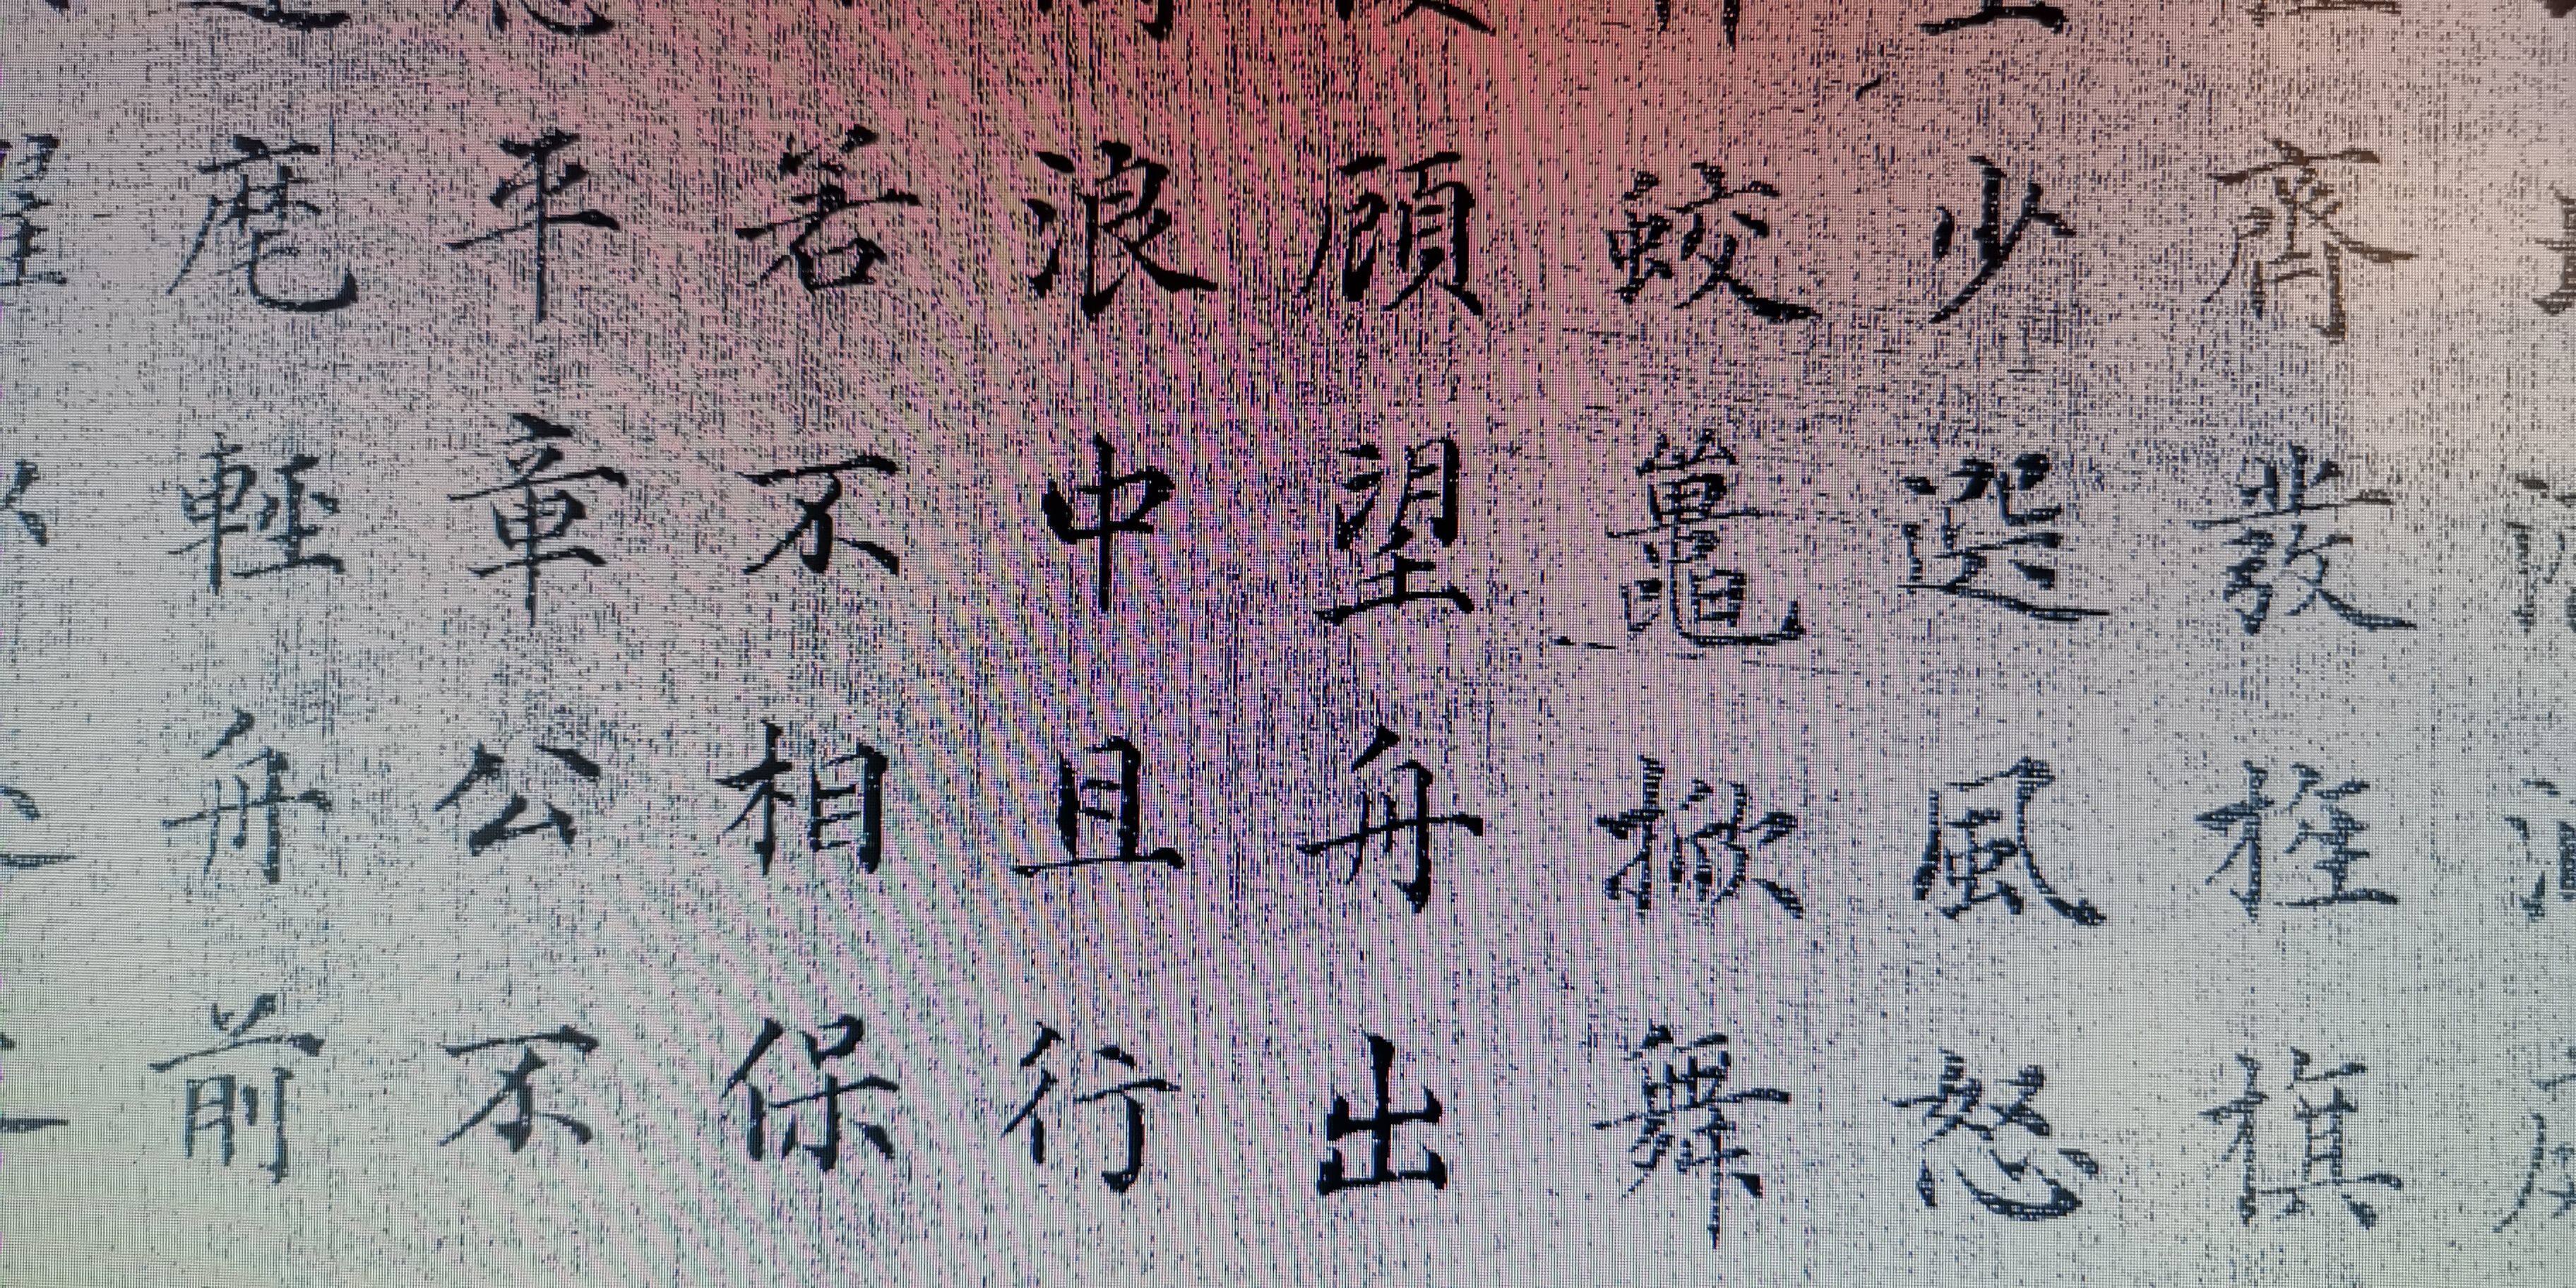 齊
少選風怒
蛟鼉掀舞
顧望舟出
浪中且行
若不相保
平章公不
麾輕舟前